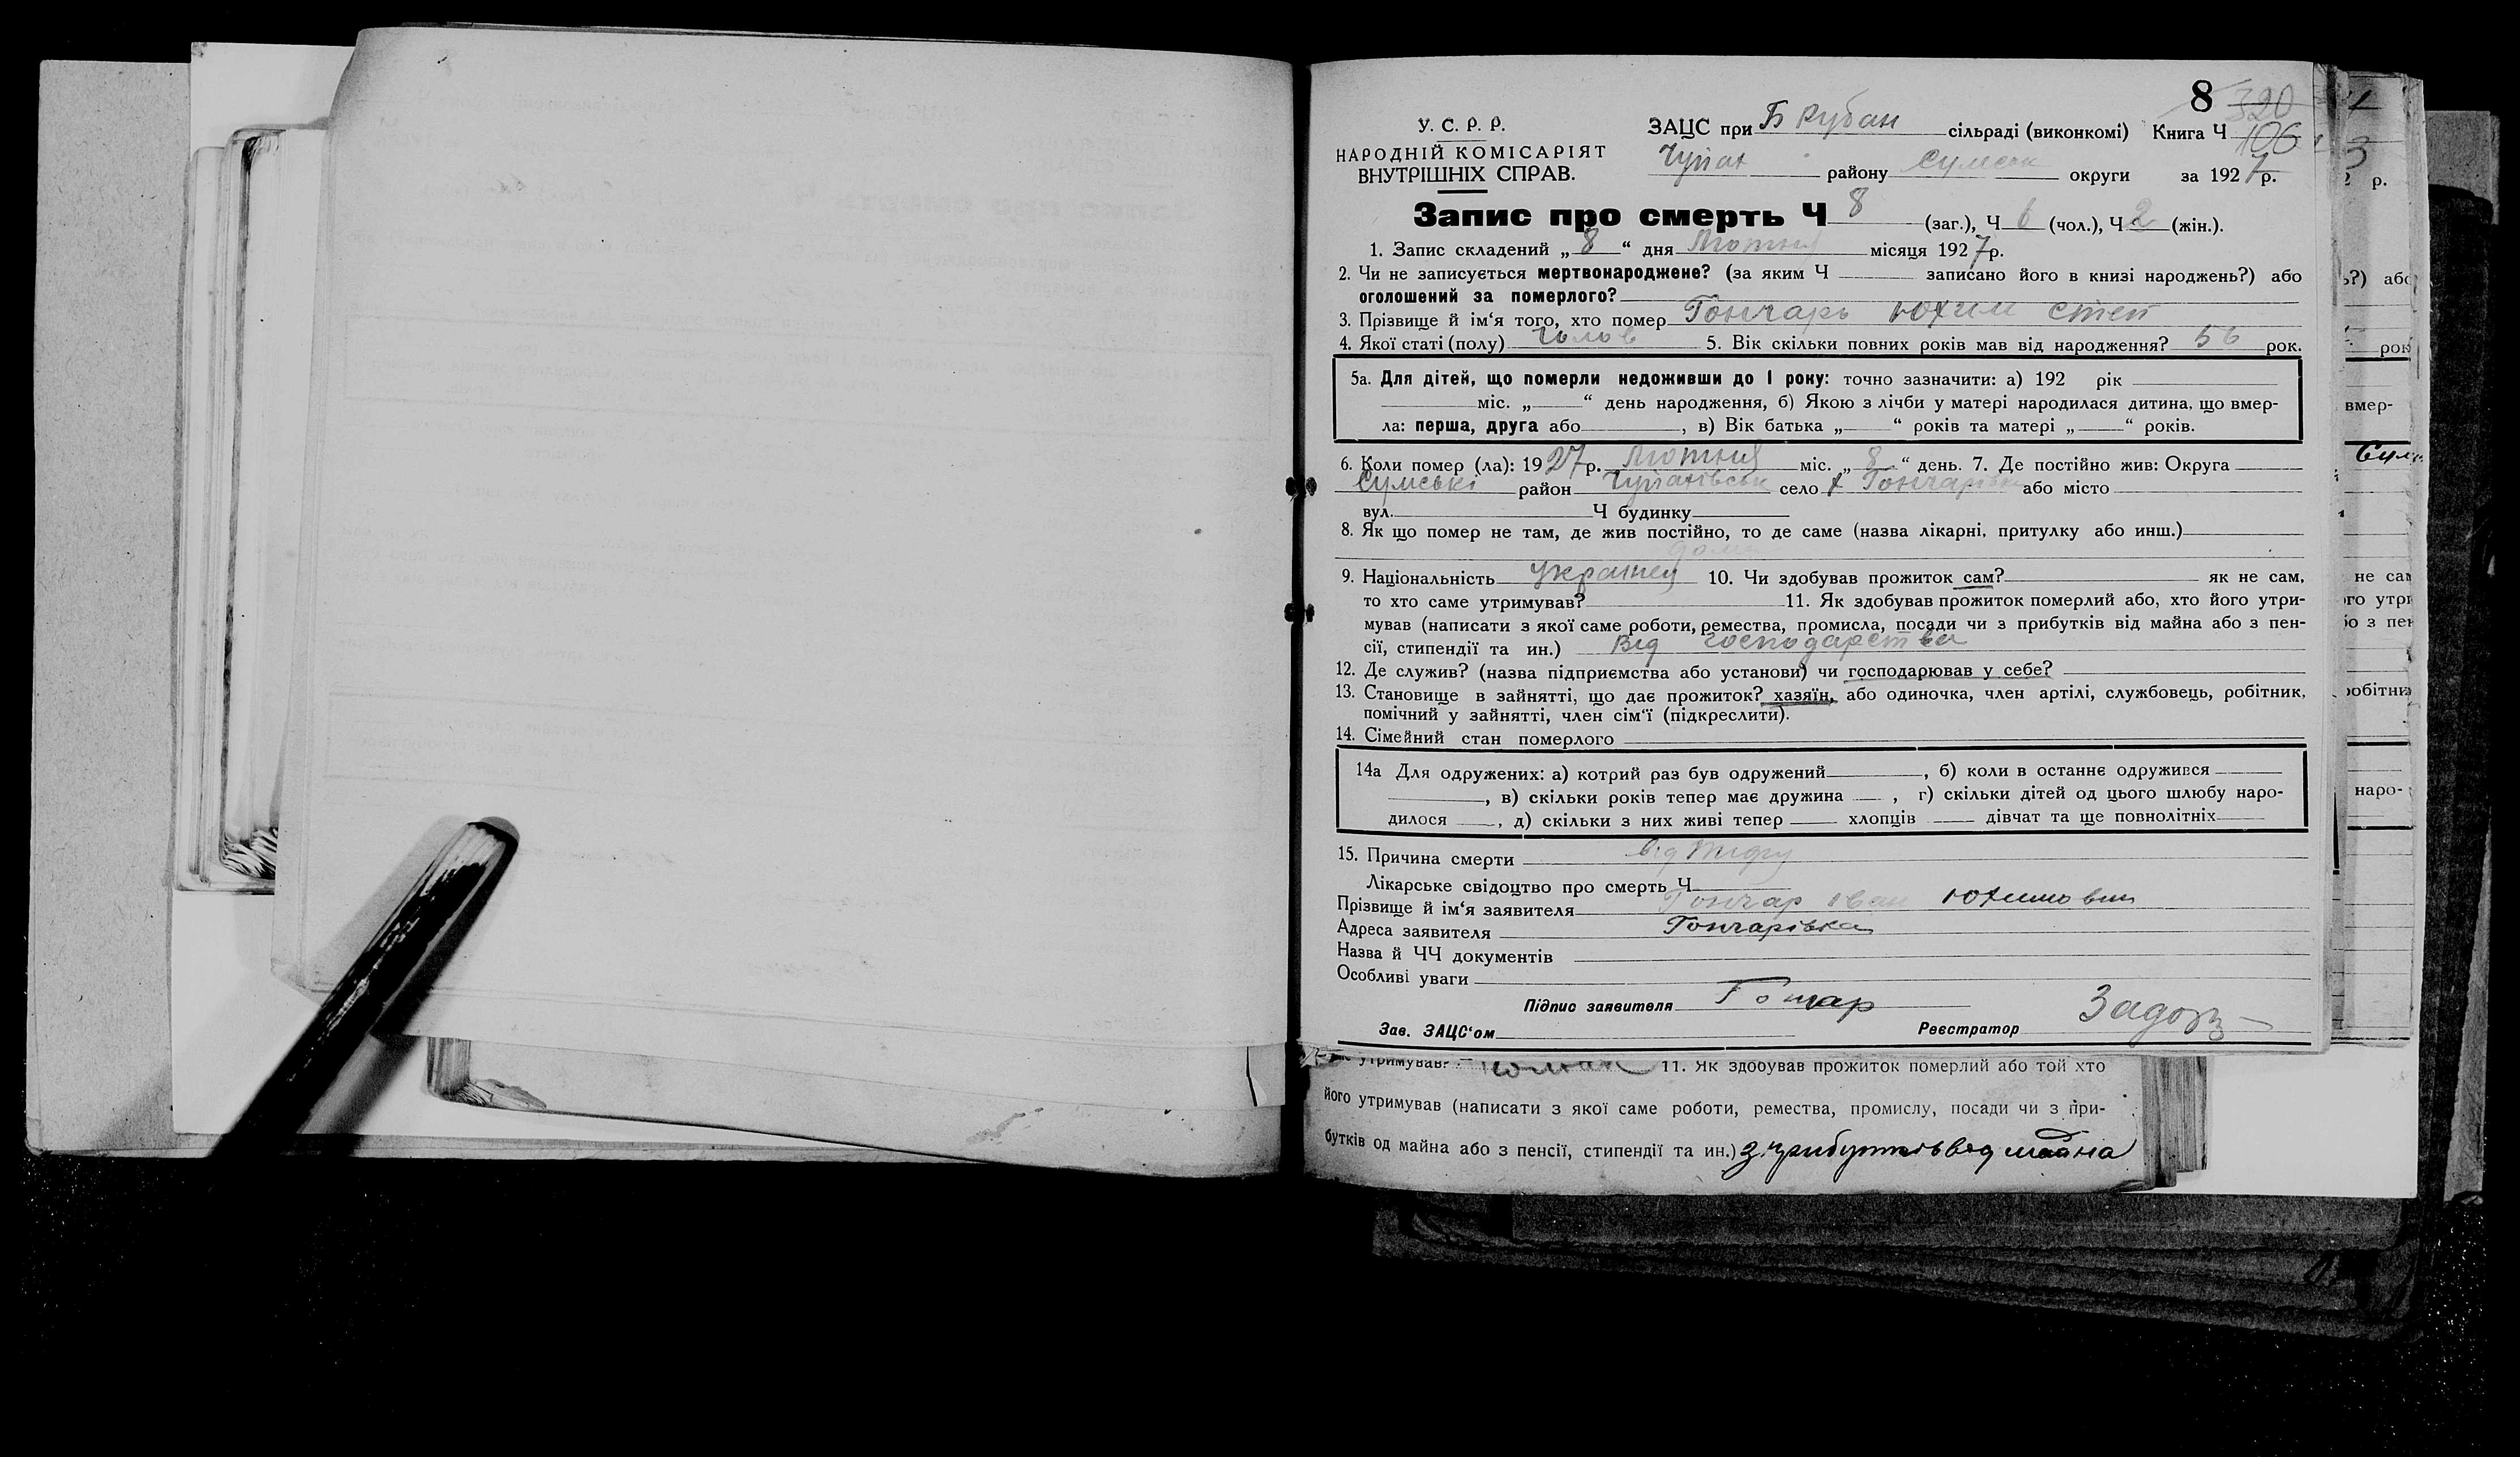 8 320
У. С. Р. Р.
НАРОДНІЙ КОМІСАРІЯТ
ВНУТРІШНІХ СПРАВ.
ЗАЦС при Б Рубан сільраді (виконкомі) Книга Ч 106
Чупах району Сумськ округи за 1927 р.
Запис про смерть Ч 8 (заг.), Ч 6 (чол.), Ч 2 (жін.).
1. Запис складений „ 8 “ дня Лютня місяця 1927 р.
2. Чи не записується мертвонароджене? (за яким Ч записано його в книзі народжень?) або
оголошений за померлого?
3. Прізвище й ім‘я того, хто помер Гончарь Юхим Степ
4. Якої статі (полу) Чолов 5. Вік скільки повних років мав від народження? 56 рок.
5а. Для дітей, що померли недоживши до 1 року: точно зазначити: а) 192 рік
міс. „ “ день народження, б) Якою з лічби у матері народилася дитина, що вмер-
ла: перша, друга або , в) Вік батька „ “ років та матері „ “ років.
6. Коли помер (ла): 1927 р. Лютня міс. „ 8 “ день. 7. Де постійно жив: Округа
Сумські район Чупахівськ село х Гончарівка або місто
вул. Ч будинку
8. Як що помер не там, де жив постійно, то де саме (назва лікарні, притулку або инш.)
дома
9. Національність Українец 10. Чи здобував прожиток сам? як не сам,
то хто саме утримував? 11. Як здобував прожиток померлий або, хто його утри-
мував (написати з якої саме роботи, ремества, промисла, посади чи з прибутків від майна або з пен-
сії, стипендії та ин.) Від господарства
12. Де служив? (назва підприємства або установи) чи господарював у себе?
13. Становище в зайнятті, що дає прожиток? хазяїн, або одиночка, член артілі, службовець, робітник,
помічний у зайнятті, член сім‘ї (підкреслити).
14. Сімейний стан померлого
14а Для одружених: а) котрий раз був одружений , б) коли в останнє одружився
, в) скільки років тепер має дружина , г) скільки дітей од цього шлюбу наро-
дилося , д) скільки з них живі тепер хлопців дівчат та ще повнолітніх
15. Причина смерти від тифу
Лікарське свідоцтво про смерть Ч
Прізвище й ім‘я заявителя Гончар Іван Юхимович
Адреса заявителя Гончарівка
Назва й ЧЧ документів
Особливі уваги
Підпис заявителя Гончар
Зав. ЗАЦС‘ом Реєстратор
утримував? 11. Як здобував прожиток померлий або той хто
його утримував (написати з якої саме роботи, ремества, промислу, посади чи з при-
бутків од майна або з пенсії, стипендії та ин.) з прибутків від майна
3
р.
ь?) або
рок
вмер-
не сам
го утри
о з пен
робітник
наро-